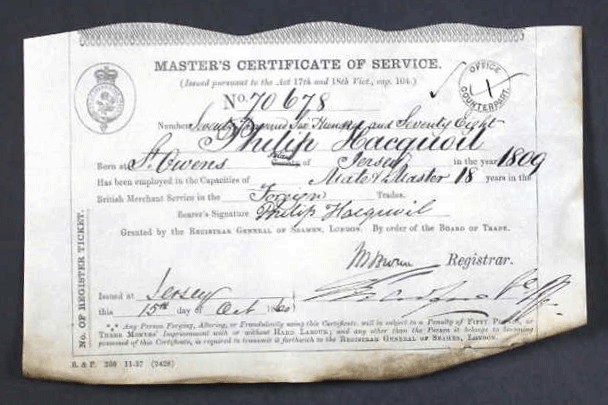 MASTER'S CERTIFICATE OF SERVICE.
(Issued pursuant to the Act 17th and 18th Vict., cap. 104.)
OFFICE
1
COUNTERPART.
No. 70678
Number Seventy Thousand Six Hundred and Seventy Eight
Philip Hacquoil
Born at St. Owens County Island of Jersey in the year 1809
Has been employed in the Capacities of Mate & Master 18 years in the
British Merchant Service in the Foreign Trades.
Bearer's Signature Philip Hacquoil
Granted by the REGISTRAR GENERAL OF SEAMEN, LONDON. By order of the BOARD OF TRADE.
Registrar.
Issued at Jersey
this 15th day of Oct 1860
*** Any Person Forging, Altering, or Fraudulently using this Certificate, will be subject to a Penalty of FIFTY POUNDS, or
THREE MONTHS' Imprisonment with or without HARD LABOUR; and any other than the Person it belongs to becoming
possessed of this Certificate, is required to transmit it forthwith to the REGISTRAR GENERAL OF SEAMEN, LONDON.
No. OF REGISTER TICKET.